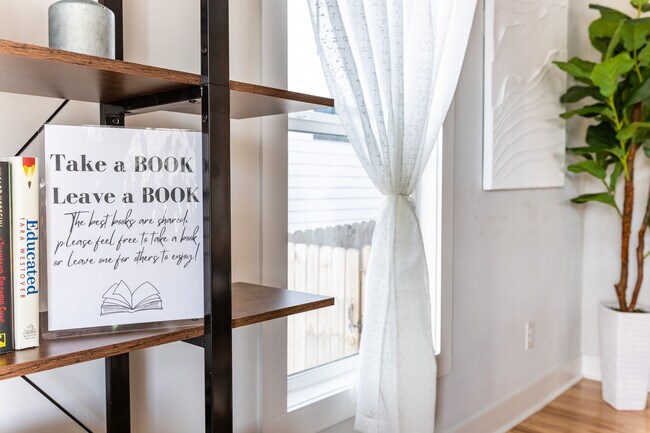 Take a BOOK
Leave a BOOK
The best books are shared,
please feel free to take a book
or leave one for others to enjoy!
Educated
TARA WESTOVER